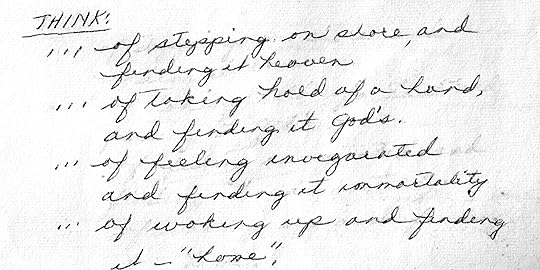 THINK:
... of stepping on shore, and
finding it heaven
... of taking hold of a hand,
and finding it God's.
... of feeling invegorated
and finding it immortality
... of waking up and finding
it - "home".